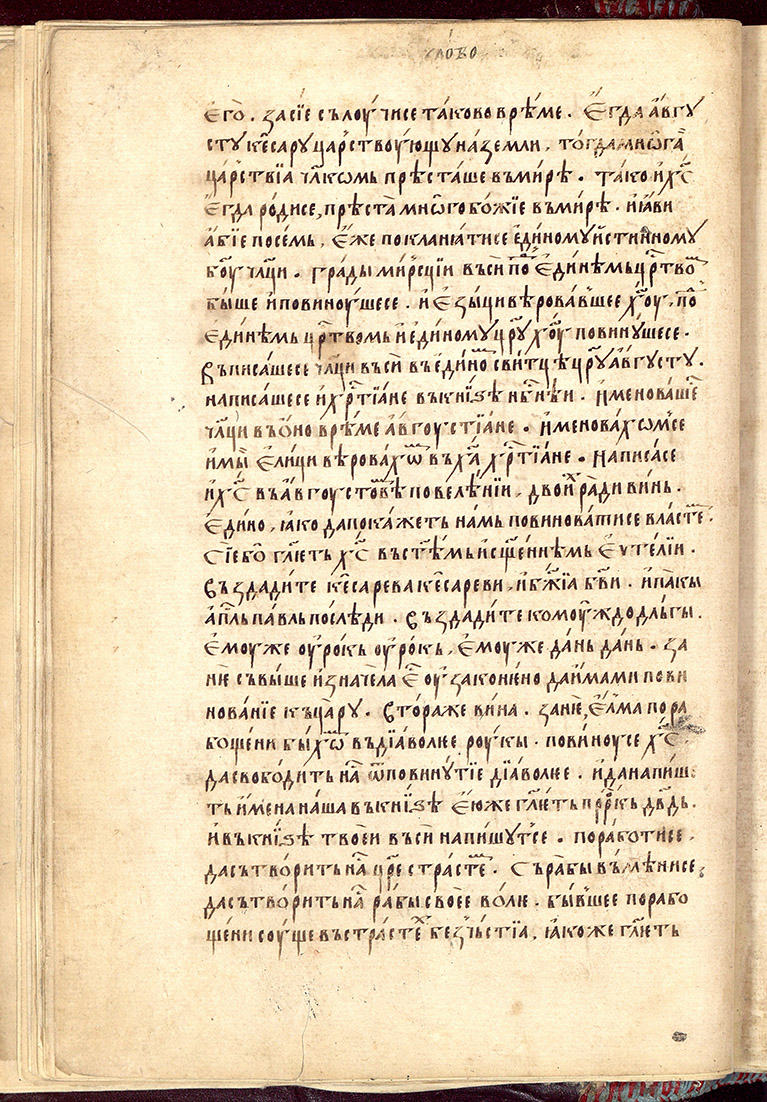 слово
его̀. засїе сълоу́чисе таково врѣ́ме. Е҆гда а҆́вгу
сту ке҆сару ца́рствоу́ющу на земли. тогда мнѡ̑га҄
ца́рствїа чл҃кѡмь прѣ́сташе въ ми́рѣ. тако и҆ х҃с
е҆гда ро́дисе, прѣ́ста мнѡ̑гобо́жїе въ ми́рѣ. и҆ꙗ҆ви
а҆́бїе посе́мь, е҆́же покланꙗ́тисе е҆ди́номуи҆́стинному
бо҃у чл҃ци. гра́ды ми́рсцїи въси́ по҆ е҆ди́нѣмь цр҃тво
быше и҆повиноу́шесе. и҆ е҆зы́ци вѣрова́вшее х҃оу, по҆
е҆ди́нѣмь цр҃твомь и҆ е҆ди́ному цр҃у х҃оу повину́шесе.
въписа́шесе чл҃ци въси́ въ е҆ди́но сви́тцѣ цр҃у а҆́вгусту.
написа́шесе и҆ хр҃тїа́не въ кни́ꙃѣ нб҃нѣи. и҆менова́ше
чл҃ци въ ѻ҆́но врѣ́ме а҆вгоустїа́не. и҆менова́хѡмсе
и҆ мы̀ е҆ли́ци вѣ́ровахѡ҄ въ х҃а хр҃тїа́не. написа́се
и҆ х҃с въ а҆́вгоустовѣ повелѣ́нїи, двои́х ра́ди ви́нь.
е҆ди́но, ꙗ҆́ко да пока́жеть на́мь повинова́тисе власте.
сїе бо гл҃еть х҃с въ ст҃ѣмь и҆ сщ҃еннѣмь е҆ѵⷢ҇елїи.
въздади́те ке҆сарева ке҆сареви, и҆ бж҃їа бг҃ви. и҆ па́кы
а҆п҃ль па́вль по́слѣди. въздади́те комоу́ждо дль́гы.
е҆моу́же оу҆ро́кь оу҆ро́кь, е҆моу́же да́нь да́нь. за
нѥ̀ съвы́ше и҆значе́ла е҆҄ оу҆зако́нѥно да и҆́мами пови
нова́нїе къ ца́ру. вто́раже ви́на. занѥ̀, е҆́лма пора
бо́щени бы́хѡ҄ въ дїа́волѥ роу́кы. пови́ноусе х҃с.
да свобо́дить на҄ ѿ пови́нутїе дїа́волѥ. и҆ да напи́ше
ть и҆́мена на́ша въ кни́ꙃѣ е҆́юже гл҃еть пр҃ркь дв҃дь.
и҆ въ кни́ꙃѣ твоѥи въси́ напи́шутсе. порабо́тисе
да сътво́рить на҄ цр҃е страсте. съ ра́бы въмѣ́нисе,
да сътво́рить на҄ ра́бы своѥе во́лѥ. бы́вшее порабо
щени соу́ще въ стра́сте҄ безчь́стїа, ꙗ҆́коже гл҃еть